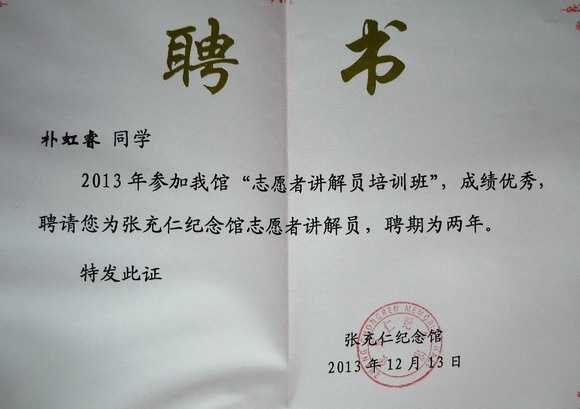 聘书
朴虹睿 同学
2013年参加我馆“志愿者讲解员培训班”，成绩优秀，
聘请您为张充仁纪念馆志愿者讲解员，聘期为两年。
特发此证
张充仁纪念馆
2013年12月13日